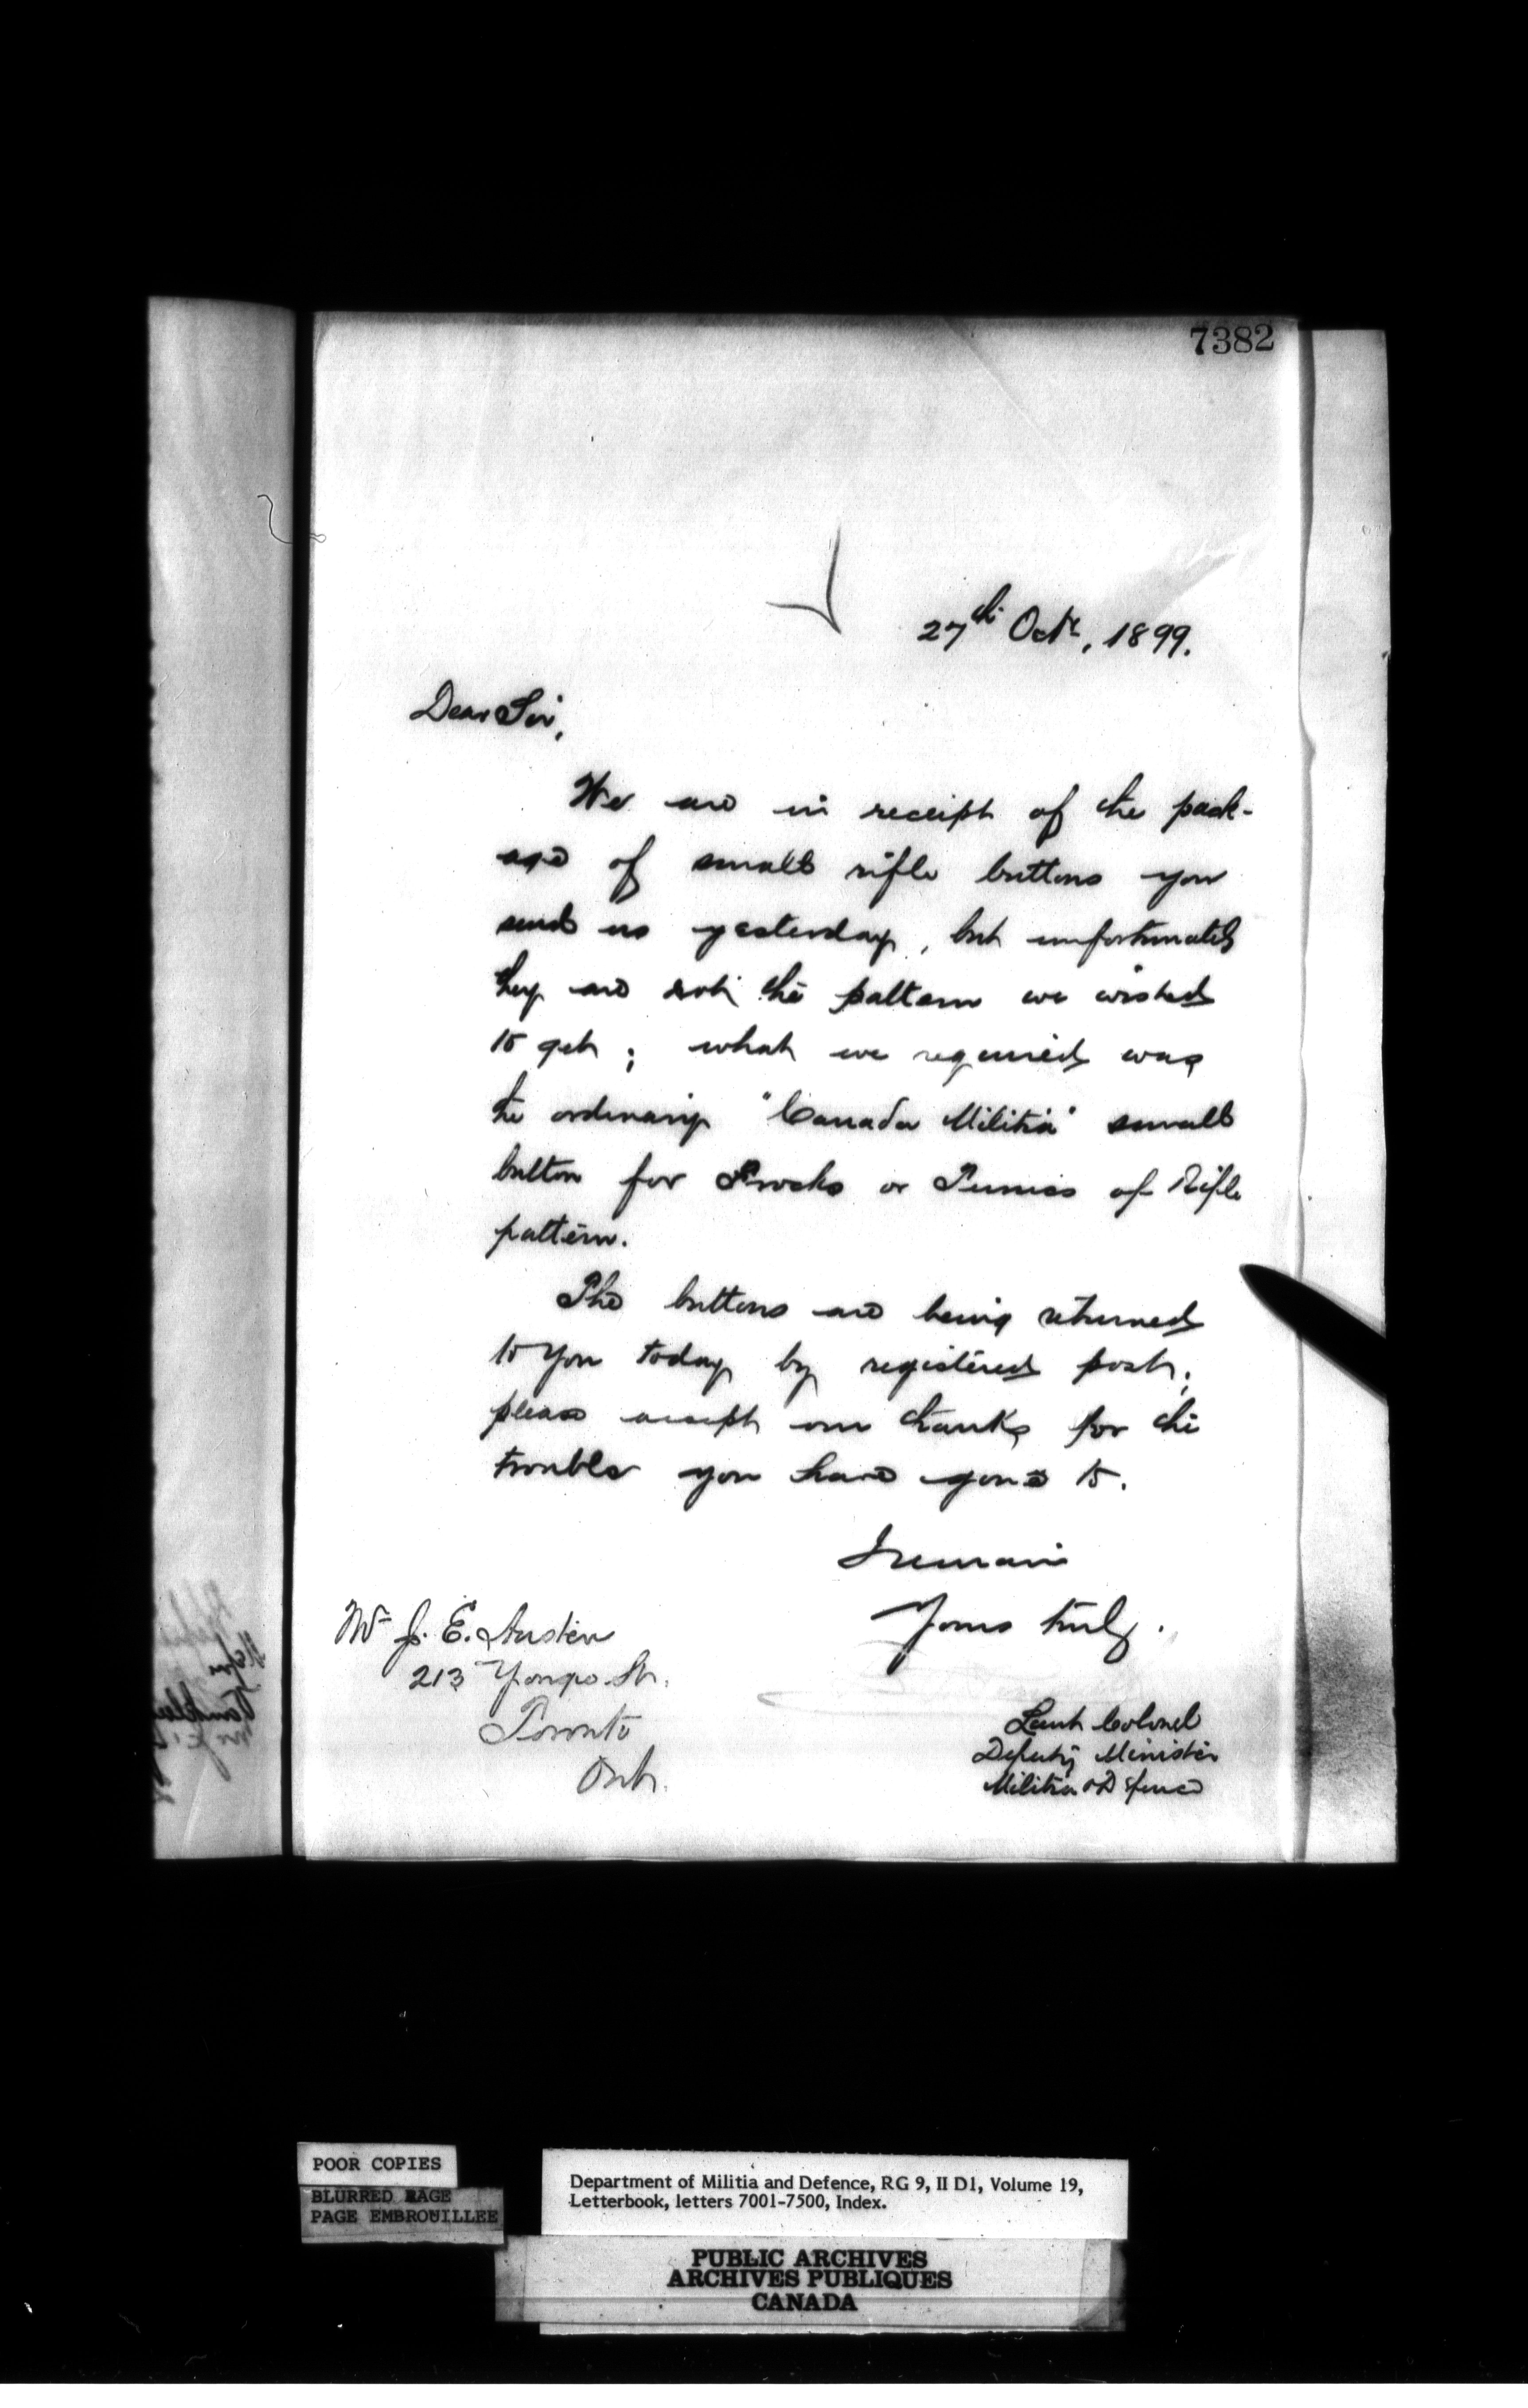 7382
27th Octr, 1899.
Dear Sir,
We are in receipt of the pack-
age of small rifle buttons you
send us yesterday, but unfortunately
they are not the pattern we wished
to get; what we required was
the ordinary "Canada Militia" small
button for Frocks or Tunics of Rifle
pattern.
The buttons are being returned
to you today by registered post;
please accept our thanks for the
trouble you have gone to.
I remain
Yours truly.
Lieut Colonel
Deputy Minister
Militia & Defence
Mr J. E. Austin
213 Yonge St.
Toronto
Ont.
POOR COPIES
BLURRED PAGE
PAGE EMBROUILLEE
Department of Militia and Defence, RG 9, II D1, Volume 19,
Letterbook, letters 7001-7500, Index.
PUBLIC ARCHIVES
ARCHIVES PUBLIQUES
CANADA